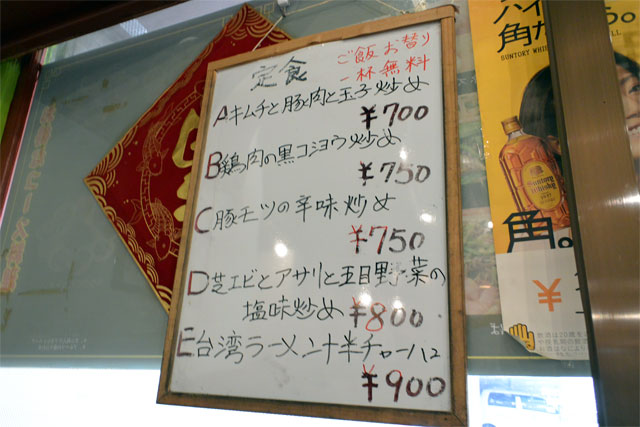 定食
ご飯お替り
一杯無料
Aキムチと豚肉と玉子炒め
¥700
B鶏肉の黒コショウ炒め
¥750
C豚モツの辛味炒め
¥750
D芝エビとアサリと五目野菜の
塩味炒め ¥800
E台湾ラーメン+半チャーハン
¥900
角
SUNTORY WHIS
角。
¥